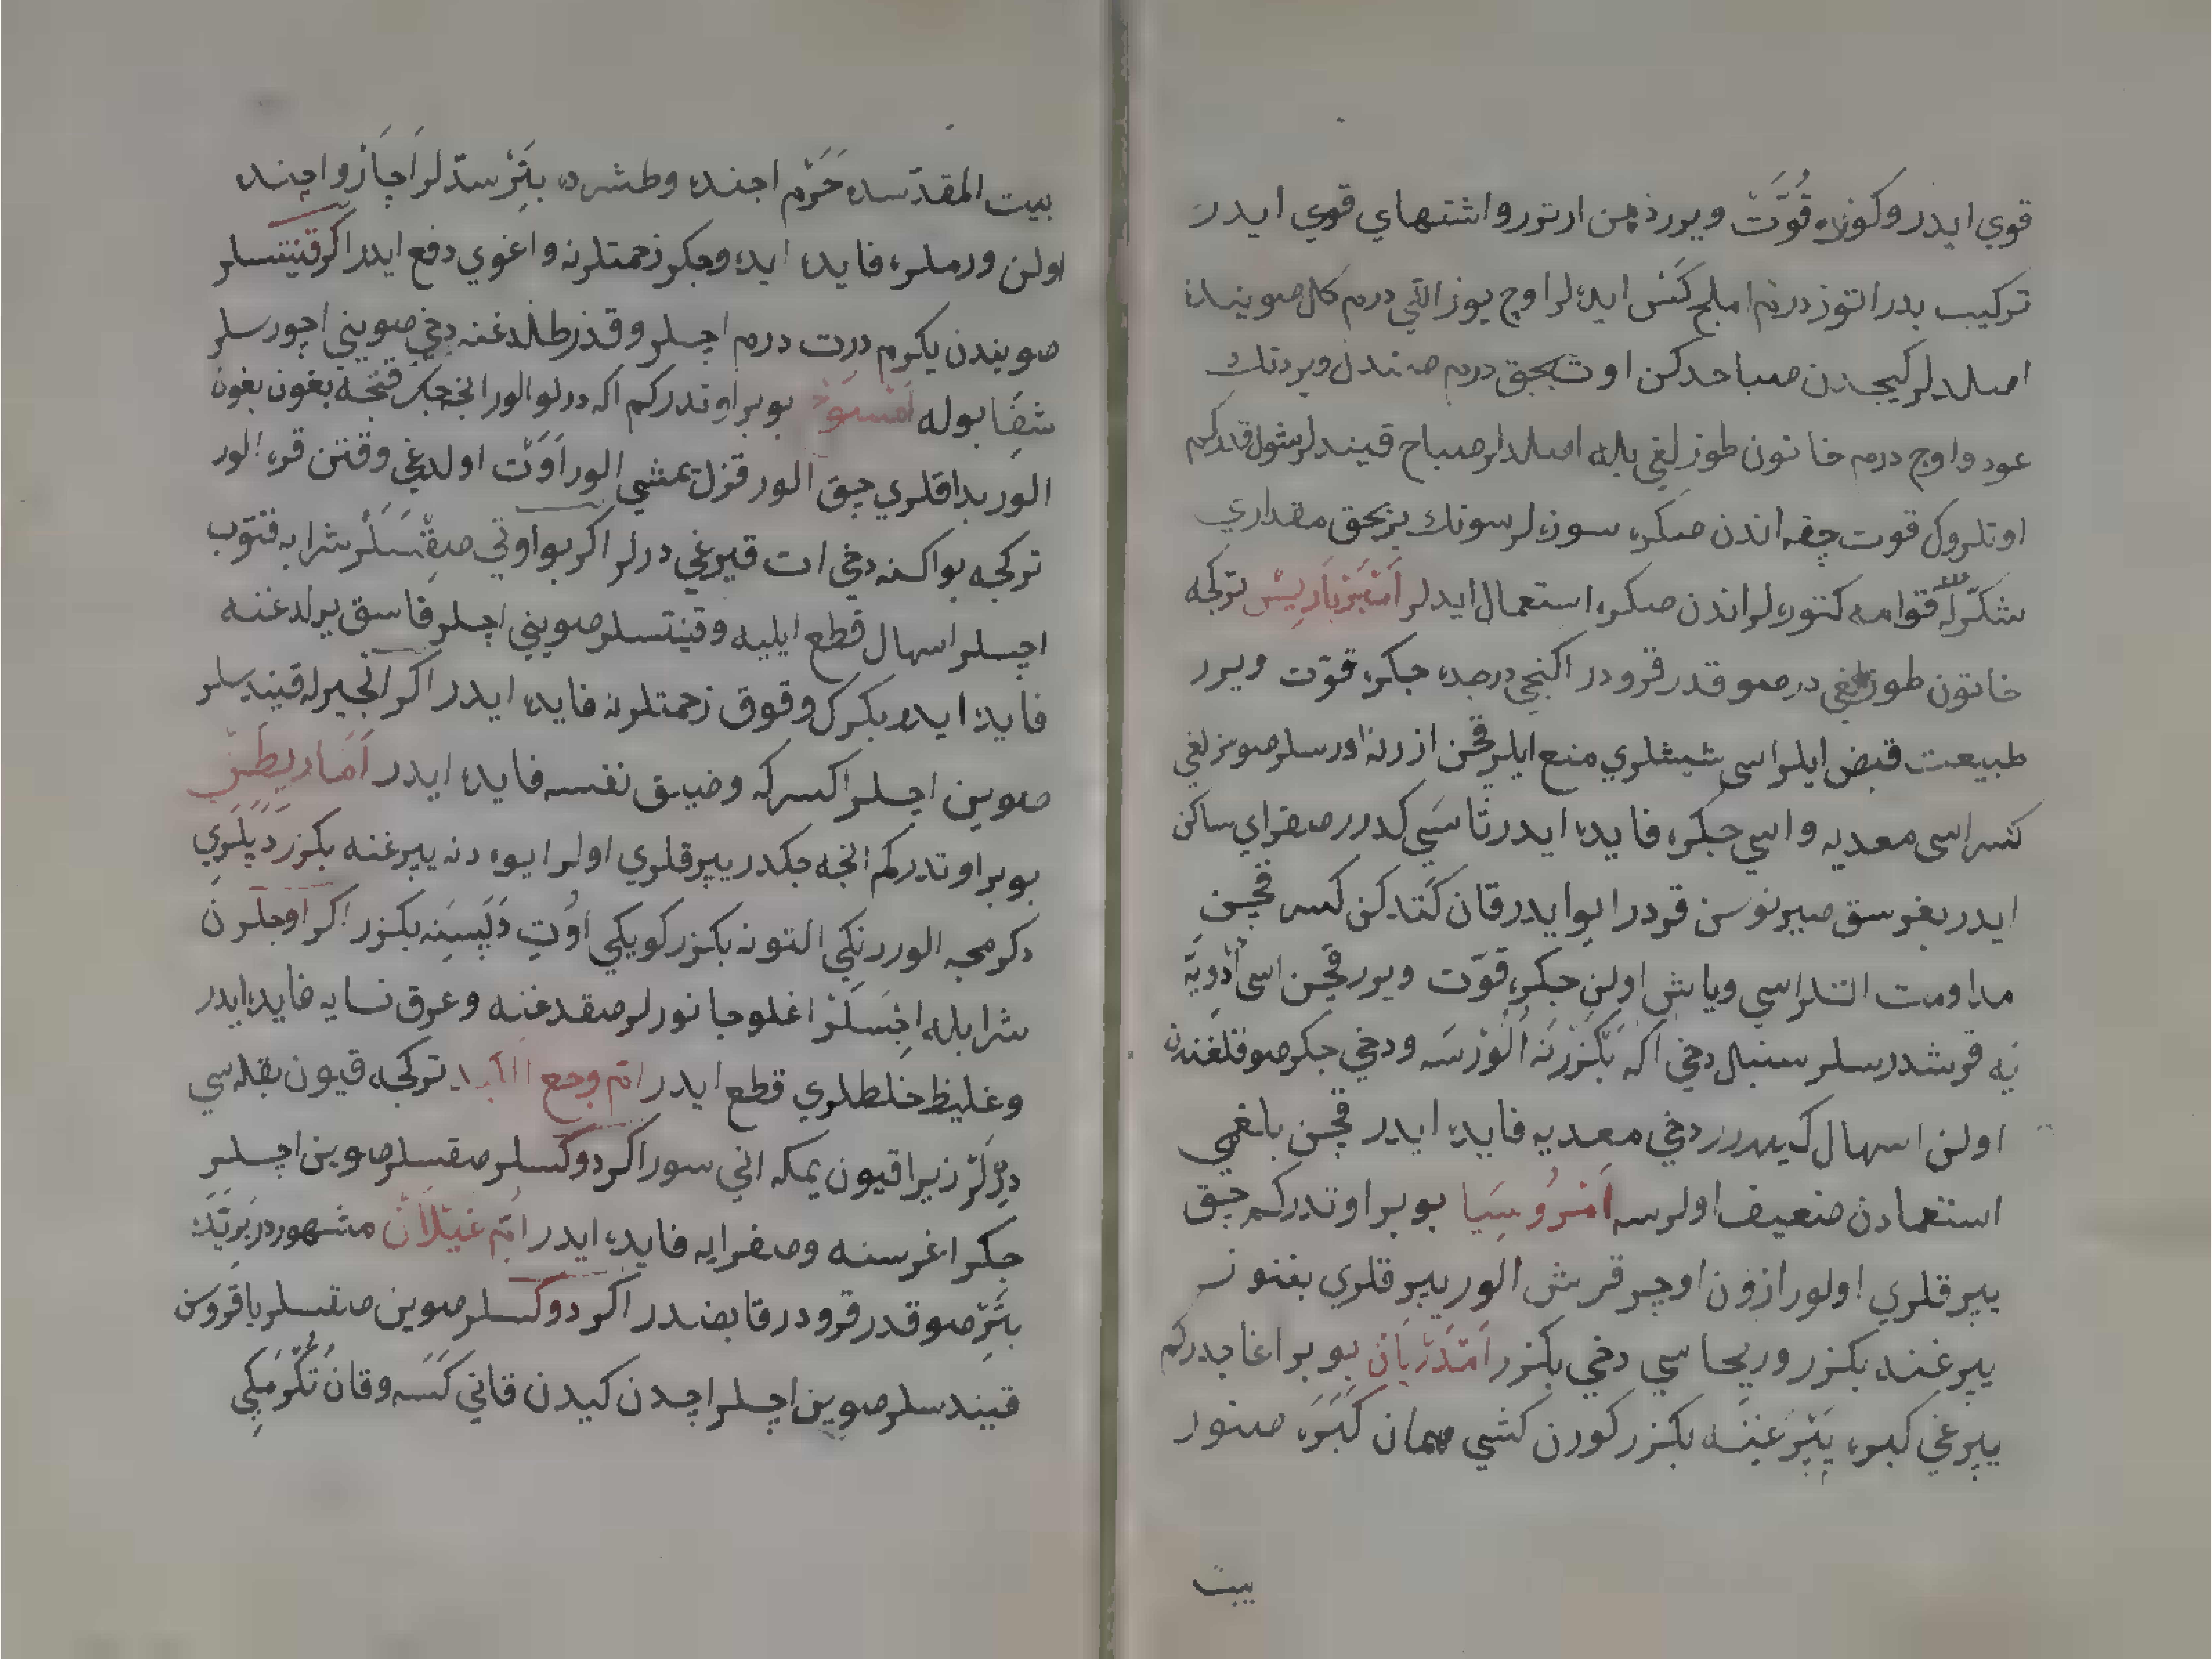 قوي ايدر وكوزه قُوَّت ويرر ذهن ارترر واشتهاي قوي ايدر
تركيب بدر التوز درم املج كتس ايده‌لر اوج يوز التي درم كل صوينده
اصلدلر كيجدن صباحدكن اوت بجق درم صندل ويردنك
عود واوج درم خاتون طوزلغي بله اصلدلر صباح قيندلر شول قدركم
اوتلروك قوت چقه اندن صكره سوزه‌لر سونك بز بجق مقداري
شكّرله قوامه كتوره‌لر اندن صكره استعمال ايدلر اَمْبَرْبَارِيسْ توركجه
خاتون طوزلغي در صوقدر قرودر اكنجي درجده جكره قوّت ويرر
طبيعت قبض ايلر اسي شيشلري منع ايلر قچن ازرنه اورسلر صوسزلغي
كسر اسي معديه واسي جكره فايده ايدر تاسَي كدرر صفراي ساكن
ايدر بغرسق صيرنوسن قودر ايو ايدر قان كتدكن كسر قچن
مداومت اتلر اسي وياش اولن جكره قوّت ويرر قچن اسي اَدْوِيَه
يه قرشدرسلر سنبل دخي اكه بَكْزَرْنَه اُلُوْرْسَه ودخي جكر صوقلغندن
اولن اسهال كيدرر دخي معديه فايده ايدر قچن بلغمي
استعمادن ضعيف اولرسه اَمْرُوسِيَا بو بر اوتدركم چق
يپرقلري اولور ازون اوچر قرش الور يپرقلري بغنونر
يپرغنه بكزر وريحاسي دخي بكزر اَمْدَرْيَانْ بو بر اغاجدركم
يپرغي كبره يَپْرَغِنَه بكزر كورن كشي همان كَبَرَه صنور
بيت
بيت المقدّسده حَرَم اجنده وطشره بِتَرْ سدّلر اَچَاَرْ واچنده
اولن ورملره فايده ايده وجكر زحمتلرنه واغوي دفع ايدر اكر قينتسلر
صويندن يكرم درت درم اچسلر وقذر طلدغنه دخي صويني اچورسلر
شِفَا بوله اَمْسُوخ بو بر اوتدركم اكه درلو الور انجه جكر قتجه بغون بغون
الور بداقلري چق الور قزل يمشي الور اَوَتْ اولدغي وقتن قره الور
توركجه بو اكنه دخي ات قيرغي درلر اكر بو اوتي صِقْسَلَرْ شرابه قتوب
اچسلر اسهال قطع ايليه وقينتسلر صويني اچلر فاسق يرلدغنه
فايده ايدر بكرك وقوق زحمتلرنه فايده ايدر اكر انجيرله قيندسلر
صوين اچلر اكسركه وضيق نفسه فايده ايدر اَمَارِيطَنْ
بو بر اوتدركم انجه جكدر يپرقلري اولر ايوه دنه يپرغنه بكزر دَپَلَرِي
دكرمجه الور رنكي التونه بكزر كويكي اوت دَپَسِنَه بكزر اكر اوجلرن
شرابله اجْسَلَرْ اغلو جانورلر صقدغنه وعرق نسايه فايده ايدر
وغليظ خلطلري قطع ايدر ام وجع الكبد توركجه قيون بقله‌سي
دِرْلَرْ زيرا قيون يمكه اني سور اكر دوكسلر صقسلر صوين اچلر
جكر اغرسنه وصفرايه فايده ايدر اُمّ غيْلَانْ مشهوردر بَرِيَّدَه
بِتَرْ صوقدر قرودر قابضدر اكر دوكسلر صوين صقسلر ياقروسن
قيندسلر صوين اچلر اچدن كيدن قاني كَسَه وقان تُكُرْمَكِي